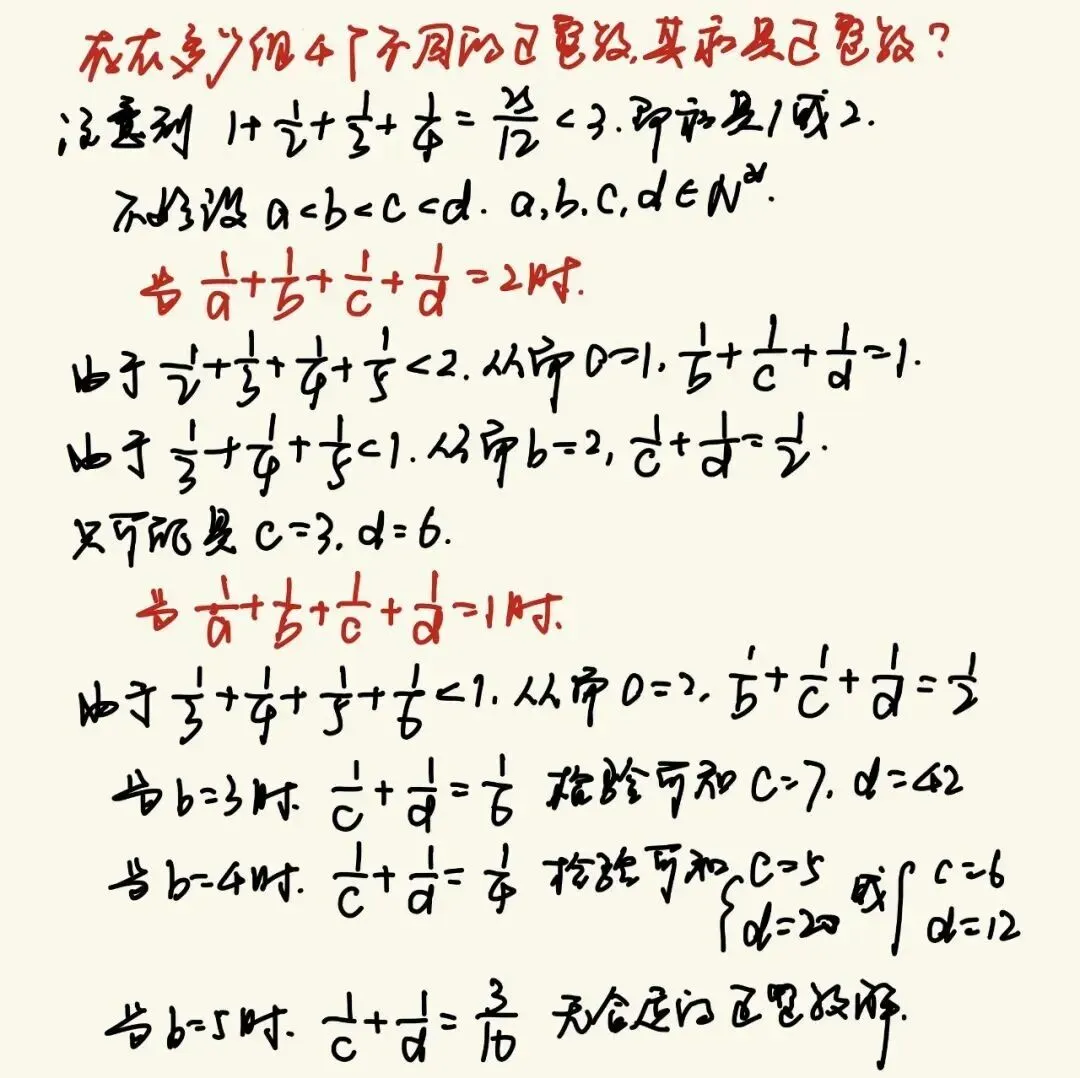 存在多少组4个不同的正整数,其和是正整数?
注意到 1+1/2+1/3+1/4=25/12<3.即和是1或2.
不妨设 a<b<c<d. a,b,c,d∈N*.
当 1/a+1/b+1/c+1/d=2时.
由于 1/2+1/3+1/4+1/5<2.从而 a=1, 1/b+1/c+1/d=1.
由于 1/3+1/4+1/5<1.从而 b=2, 1/c+1/d=1/2.
只可能是 c=3, d=6.
当 1/a+1/b+1/c+1/d=1时.
由于 1/3+1/4+1/5+1/6<1.从而 a=2, 1/b+1/c+1/d=1/2
当 b=3时. 1/c+1/d=1/6 检验可知 c=7, d=42
当 b=4时. 1/c+1/d=1/4 检验可知 {c=5 d=20 或 {c=6 d=12
当 b=5时. 1/c+1/d=3/10 无合适的正整数解.